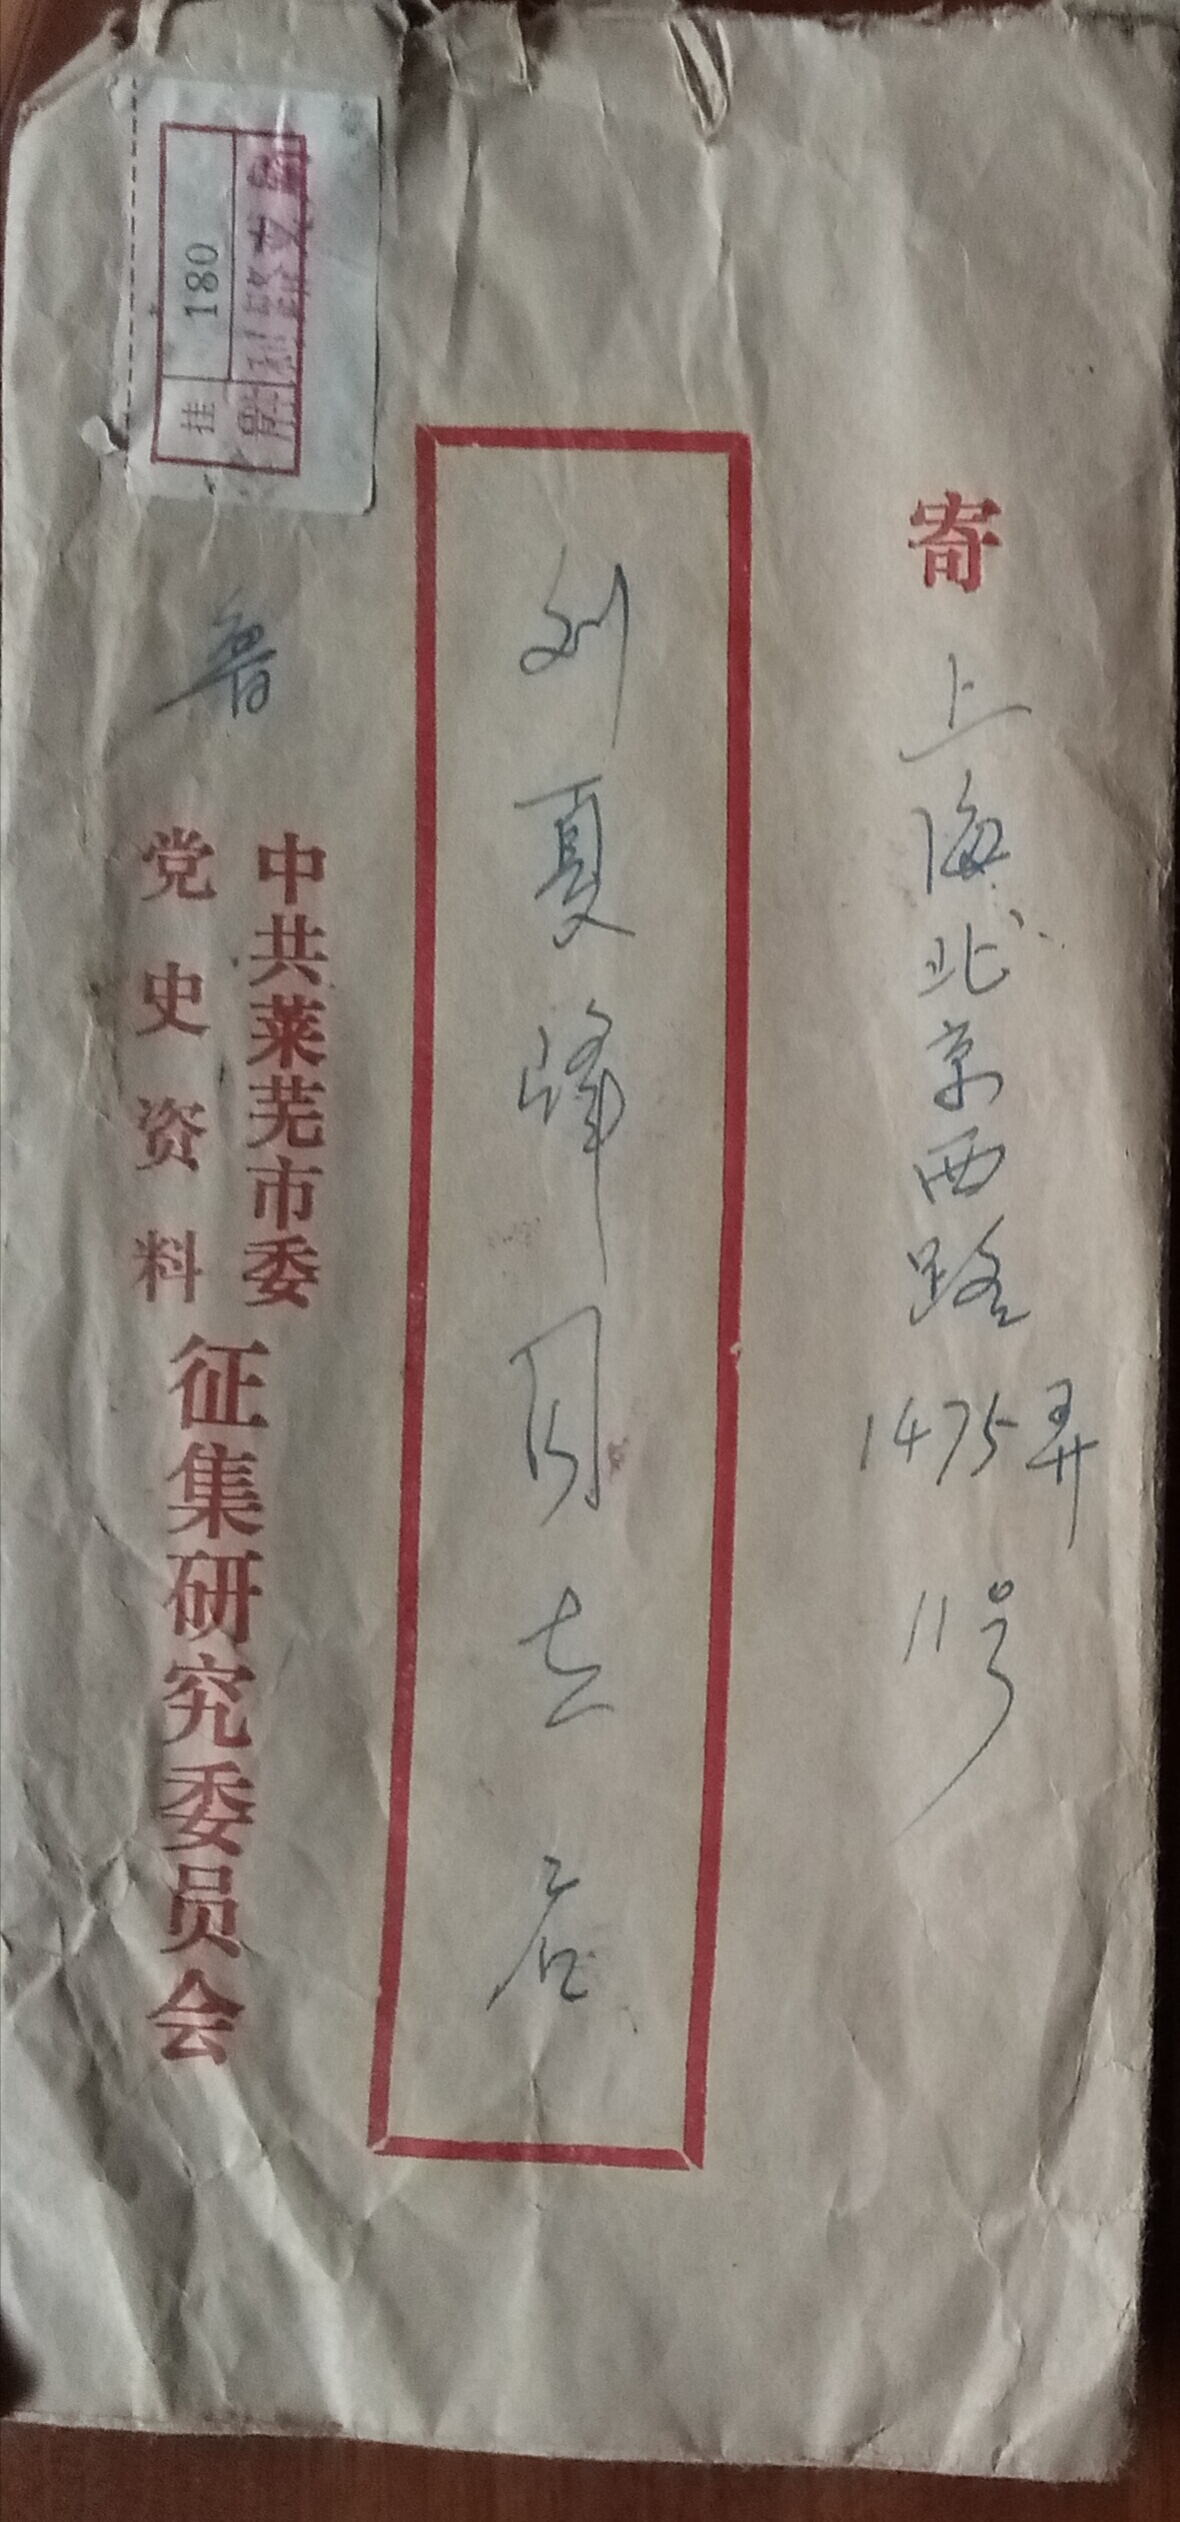 寄
上海北京西路
1475弄
11号
刘夏峰同志启
鲁
中共莱芜市委
党史资料
征集研究委员会
挂
180